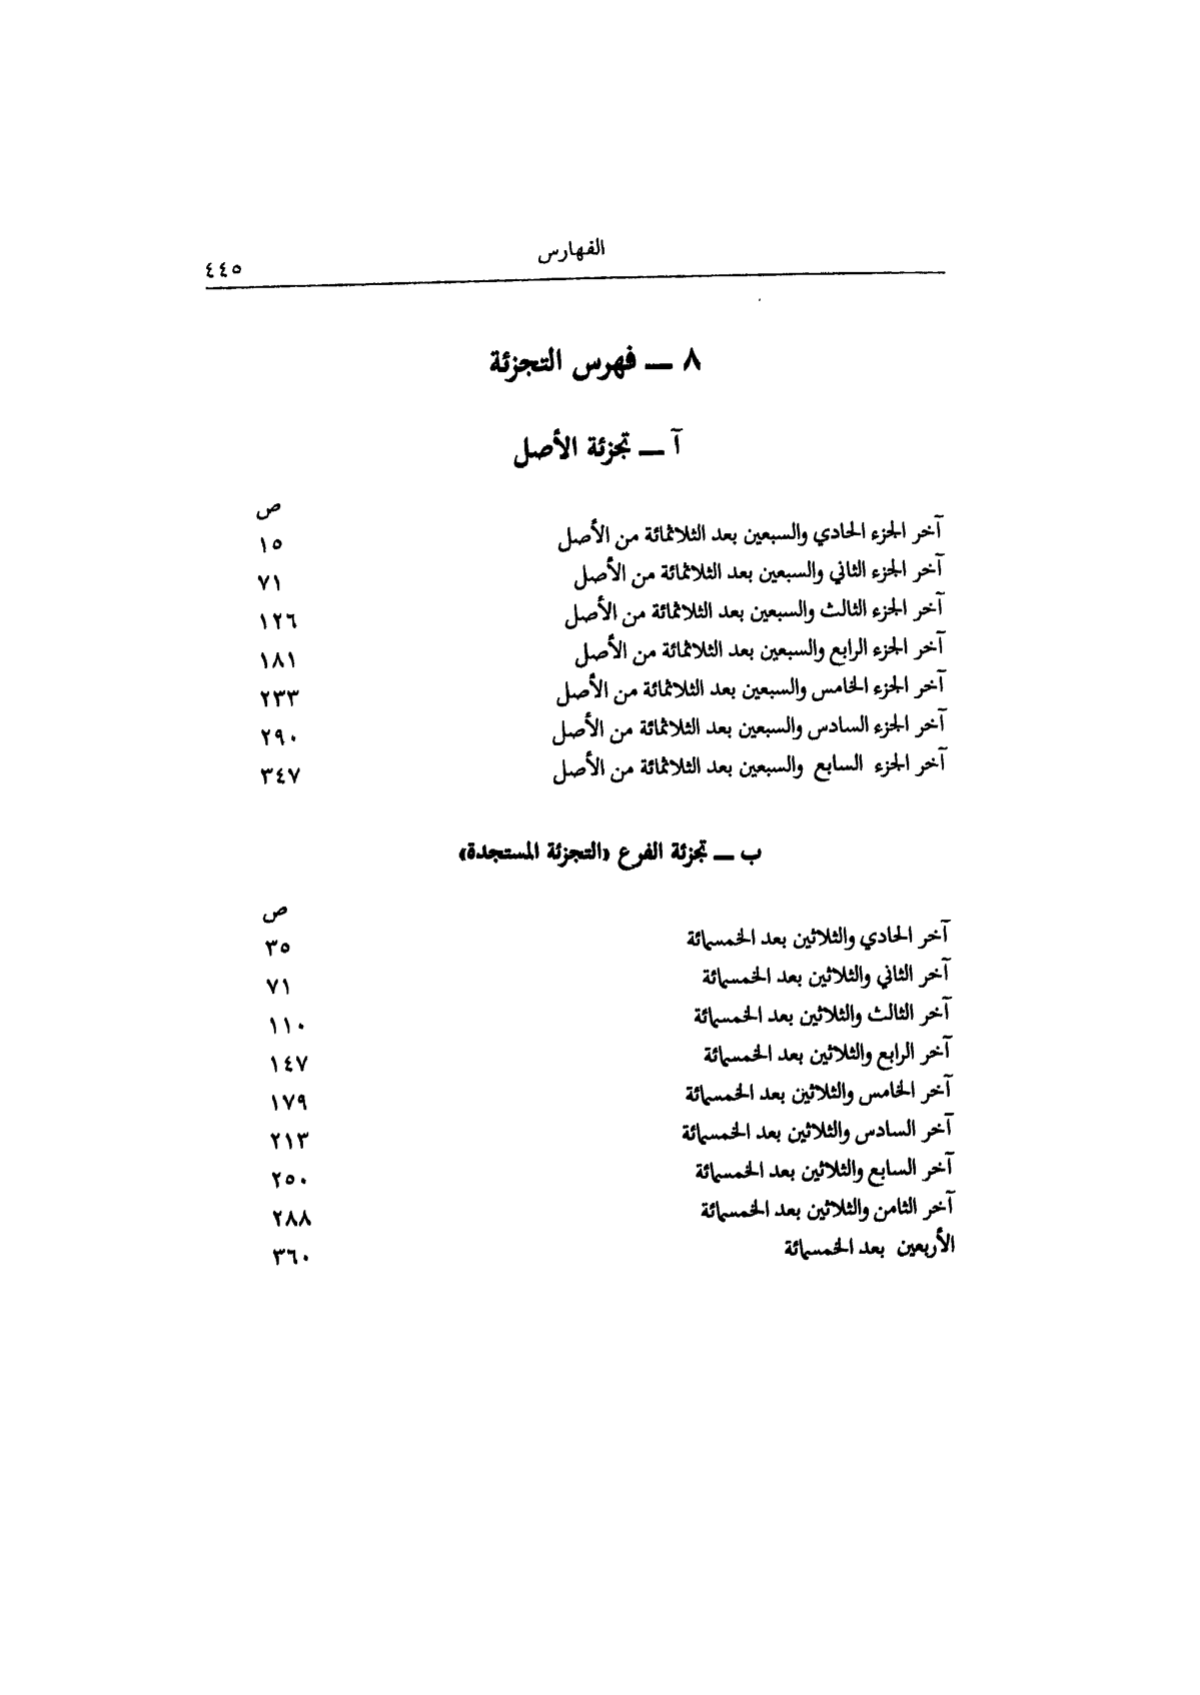 الفهارس
٤٤٥
٨ — فهرس التجزئة
آ — تجزئة الأصل
ص
آخر الجزء الحادي والسبعين بعد الثلاثمائة من الأصل ١٥
آخر الجزء الثاني والسبعين بعد الثلاثمائة من الأصل ٧١
آخر الجزء الثالث والسبعين بعد الثلاثمائة من الأصل ١٢٦
آخر الجزء الرابع والسبعين بعد الثلاثمائة من الأصل ١٨١
آخر الجزء الخامس والسبعين بعد الثلاثمائة من الأصل ٢٣٣
آخر الجزء السادس والسبعين بعد الثلاثمائة من الأصل ٢٩٠
آخر الجزء السابع والسبعين بعد الثلاثمائة من الأصل ٣٤٧
ب — تجزئة الفرع «التجزئة المستجدة»
ص
آخر الحادي والثلاثين بعد الخمسمائة ٣٥
آخر الثاني والثلاثين بعد الخمسمائة ٧١
آخر الثالث والثلاثين بعد الخمسمائة ١١٠
آخر الرابع والثلاثين بعد الخمسمائة ١٤٧
آخر الخامس والثلاثين بعد الخمسمائة ١٧٩
آخر السادس والثلاثين بعد الخمسمائة ٢١٣
آخر السابع والثلاثين بعد الخمسمائة ٢٥٠
آخر الثامن والثلاثين بعد الخمسمائة ٢٨٨
الأربعين بعد الخمسمائة ٣٦٠